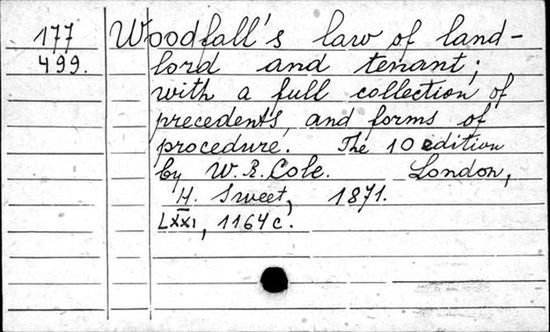 177
499.
Woodfall's law of land-
lord and tenant;
with a full collection of
precedents, and forms of
procedure. The 10 edition
by W. R. Cole. London,
H. Sweet, 1871.
LXXI, 1164 c.